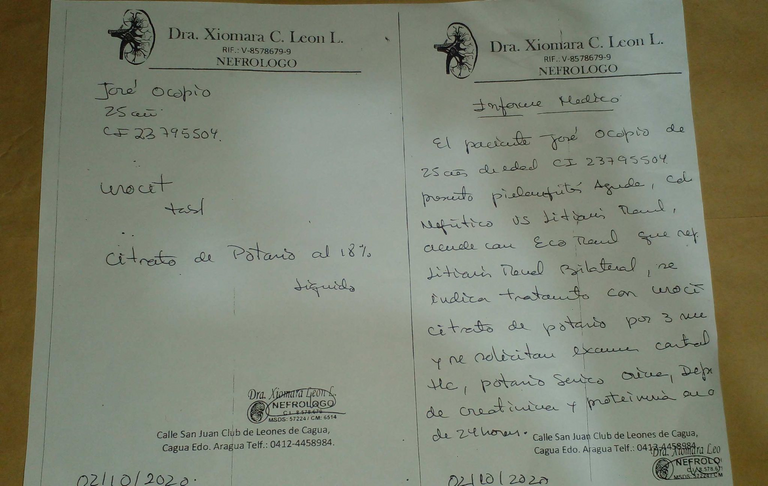 Dra. Xiomara C. Leon L.
RIF.: V-8578679-9
NEFROLOGO
José Ocopio
25 años
CI 23795504.
Urocit
tabl
Citrato de Potasio al 18%
Liquido
Dra. Xiomara León L.
NEFROLOGO
MSDS: 57224 / CM: 6514
Calle San Juan Club de Leones de Cagua,
Cagua Edo. Aragua Telf.: 0412-4458984.
02/10/2020.
Dra. Xiomara C. Leon L.
RIF.: V-8578679-9
NEFROLOGO
Informe Medico
El paciente José Ocopio de
25 años de edad CI 23795504
presento pielonefritis Aguda, col
Nefritico VS Litiasis Renal,
acude con Eco Renal que rep
Litiasis Renal Bilateral, se
indica tratamiento con uroci
citrato de potasio por 3 me
y se solicitan examen control
Hc, potasio Serico orina, Depu
de creatinina y proteinuria en o
de 24 horas.
Calle San Juan Club de Leones de Cagua,
Cagua Edo. Aragua Telf.: 0412-4458984.
Dra. Xiomara Leo
NEFROLO
02/10/2020